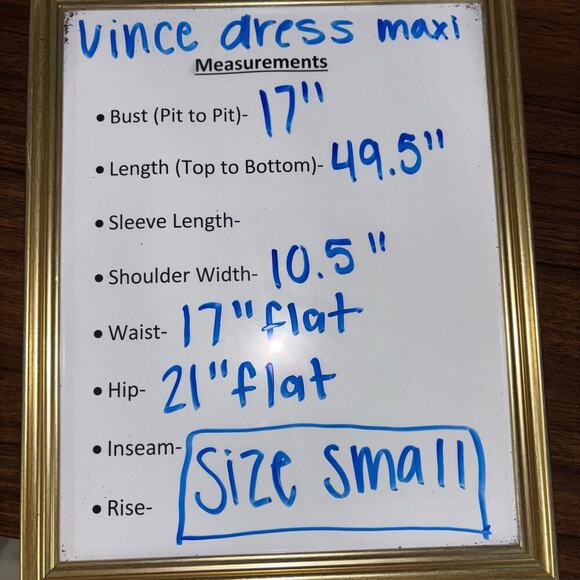 Vince dress maxi
Measurements
• Bust (Pit to Pit)- 17"
• Length (Top to Bottom)- 49.5"
• Sleeve Length-
• Shoulder Width- 10.5"
• Waist- 17" flat
• Hip- 21" flat
• Inseam-
Size small
• Rise-